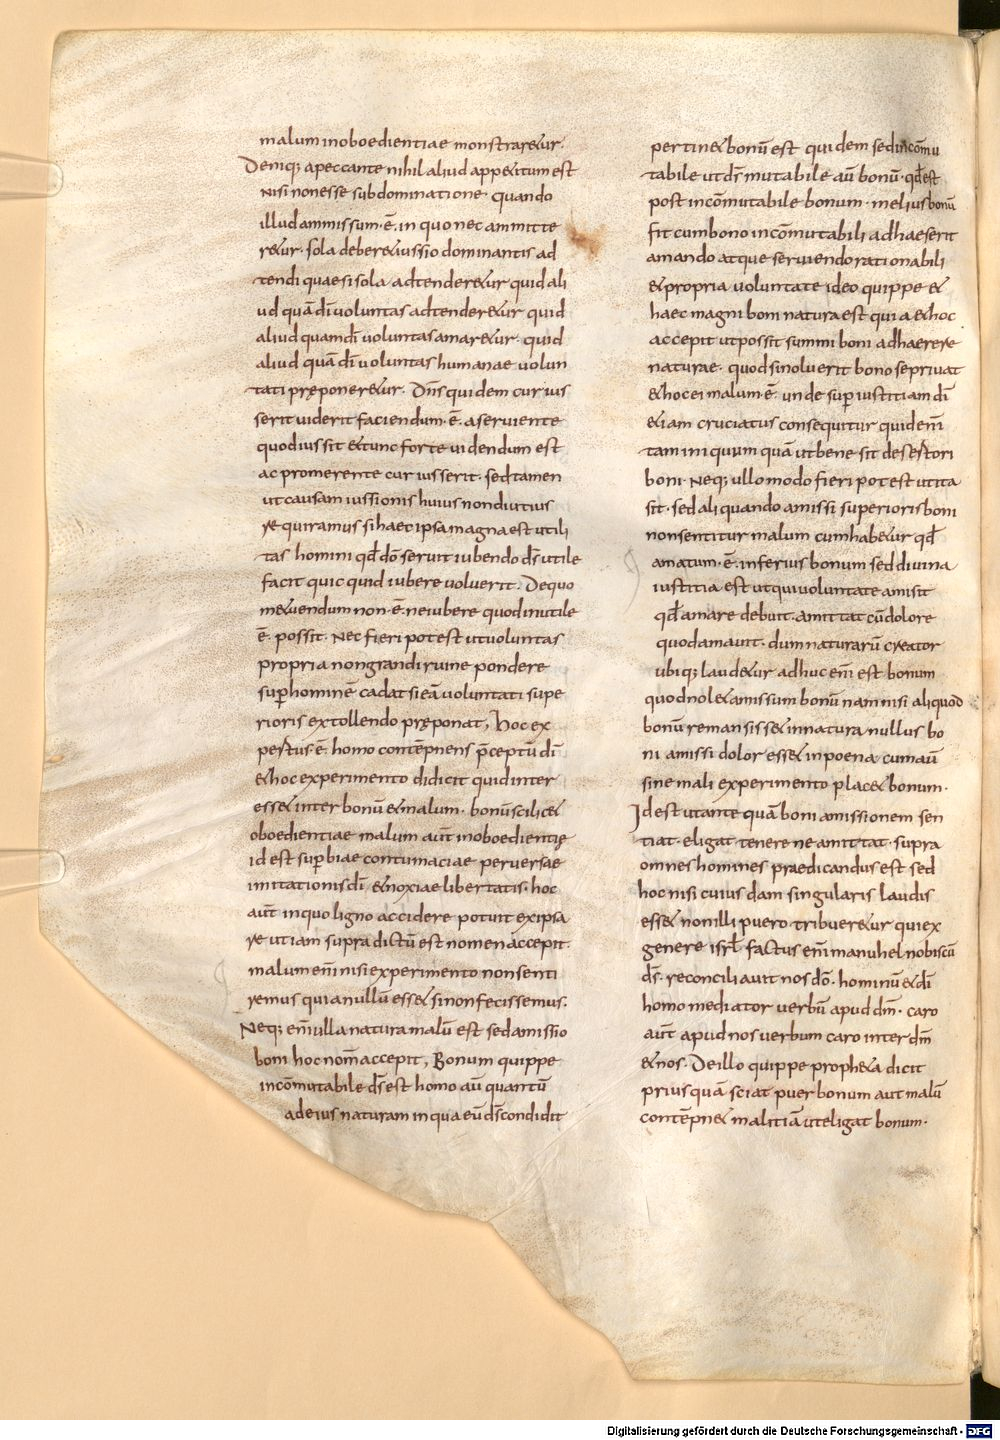 malum inoboedientiae monstraretur·
Deniq; apeccante nihil aliud appetitum est
nisi nonesse subdominatione· quando
illud ammissum·ē· in quo nec amitte
retur· sola deberet iussio dominantis ad
tendi quae si sola adtenderetur quid ali
ud quā dī uoluntas adtenderetur quid
aliud quamdī uoluntas amaretur· quid
aliud quā dī uoluntas humanae volun
tati pręponeretur· Dn̄s quidem cur ius
serit uiderit faciendum·ē· a seruiente
quod iussit et tunc forte uidendum est
ac promerente cur iusserit· sed tamen
ut causam iussionis huius non diutius
re quiramus si haec ipsa magna est utili
tas homini qđ dō seruit iubendo ds̄ utile
facit quic quid iubere uoluerit· De quo
metuendum non·ē· ne iubere quod inutile
ē· possit· Nec fieri potest ut uoluntas
propria non grandi ruine pondere
suꝑ hominē cadat si eā uoluntati supe
rioris extollendo pręponat, Hoc ex
pertus·ē· homo contēpnens p̄ceptū dī
et hoc experimento didicit quid inter
esset inter bonū et malum· bonū scilicet
oboedientiae malum aut̄ inoboedientię
id est suꝑbiae contumaciae peruersae
imitationis dī et noxiae libertatis· hoc
aut̄ in quo ligno accidere potuit ex ipsa
re ut iam supra dictū est nomen accepit·
malum eni̅ nisi experimento non senti
remus quia nullū esset si non fecissemus·
Neq; eni̅ ulla natura malū est sed amissio
boni hoc nom̄ accepit, Bonum quippe
incōmutabile ds̄ est homo aū quantū
ad eius naturam in qua eū ds̄ condidit
pertinet bonū est quidem sed incōmu
tabile ut ds̄ mutabile aū bonū· qđ est
post incōmutabile bonum· melius bonū
fit cum bono incōmutabili adhaeserit
amando atque seruiendo rationabili
et propria uoluntate ideo quippe et
haec magni boni natura est quia et hoc
accepit ut possit summi boni adhaerere
naturae· quod si noluerit bono se priuat
et hoc ei malum·ē· unde suꝑ iustitiam dī
etiam cruciatus consequitur quid eni̅
tam iniquum quā ut bene sit desertori
boni· Neq; ullo modo fieri potest ut ita
sit· sed aliquando amissi superioris boni
non sentitur malum cum habetur qđ
amatum·ē· inferius bonum sed diuina
iustitia est ut qui uoluntate amisit
qđ amare debuit· amittat cū dolore
quod amauit· dum naturarū creator
ubiq; laudetur adhuc eni̅ est bonum
quod nolet amissum bonū nam nisi aliquod
bonū remansisset in natura nullus bo
ni amissi dolor esset in poena cum aū
sine mali experimento placet bonum·
Id est ut ante quā boni amissionem sen
tiat· eligat tenere ne amittat· supra
omnes homines praedicandus est sed
hoc nisi cuius dam singularis laudis
esset non illi puero tribueretur qui ex
genere isrl̄ factus emmanuhel nobiscū
ds̄· reconciliauit nos dō· hominū et dī
homo mediator uerbū apud dm̄· caro
aut̄ apud nos uerbum caro inter dm̄
et nos· De illo quippe propheta dicit
prius quā sciat puer bonum aut malū
contēpnet malitiā ut eligat bonum·
Digitalisierung gefördert durch die Deutsche Forschungsgemeinschaft - DFG